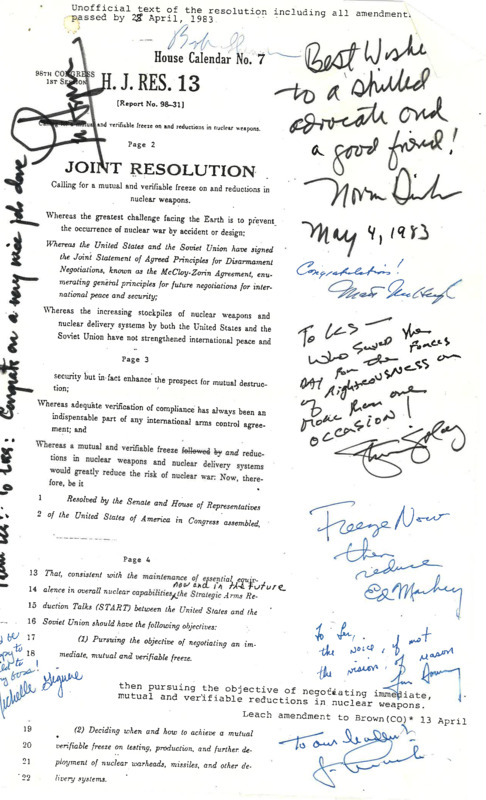 Unofficial text of the resolution including all amendment.
passed by 28 April, 1983
House Calendar No. 7
98TH CONGRESS
1ST SESSION
H. J. RES. 13
[Report No. 98-31]
Calling for a mutual and verifiable freeze on and reductions in nuclear weapons.
Page 2
JOINT RESOLUTION
Calling for a mutual and verifiable freeze on and reductions in
nuclear weapons.
Whereas the greatest challenge facing the Earth is to prevent
the occurrence of nuclear war by accident or design;
Whereas the United States and the Soviet Union have signed
the Joint Statement of Agreed Principles for Disarmament
Negotiations, known as the McCloy-Zorin Agreement, enu-
merating general principles for future negotiations for inter-
national peace and security;
Whereas the increasing stockpiles of nuclear weapons and
nuclear delivery systems by both the United States and the
Soviet Union have not strengthened international peace and
Page 3
security but in fact enhance the prospect for mutual destruc-
tion;
Whereas adequate verification of compliance has always been an
indispensable part of any international arms control agree-
ment; and
Whereas a mutual and verifiable freeze followed by and reduc-
tions in nuclear weapons and nuclear delivery systems
would greatly reduce the risk of nuclear war: Now, there-
fore, be it
1 Resolved by the Senate and House of Representatives
2 of the United States of America in Congress assembled,
Page 4
13 That, consistent with the maintenance of essential equiv-
now and in the future
14 alence in overall nuclear capabilities, the Strategic Arms Re-
15 duction Talks (START) between the United States and the
16 Soviet Union should have the following objectives:
17 (1) Pursuing the objective of negotiating an im-
18 mediate, mutual and verifiable freeze.
then pursuing the objective of negotiating immediate,
mutual and verifiable reductions in nuclear weapons.
Leach amendment to Brown(CO)* 13 April
19 (2) Deciding when and how to achieve a mutual
20 verifiable freeze on testing, production, and further de-
21 ployment of nuclear warheads, missiles, and other de-
22 livery systems.
Best Wishe
to a skilled
advocate and
a good friend!
Norm
May 4, 1983
Congratulations!
Matt
To LES —
who saved the
day for the forces
of righteousness on
more than one
occasion!
Freeze Now
then
reduce
Ed Markey
To Les,
the voice, if not
the vision, of reason
To our leader!
Congrats on a very nice job done
To Les:
Michelle